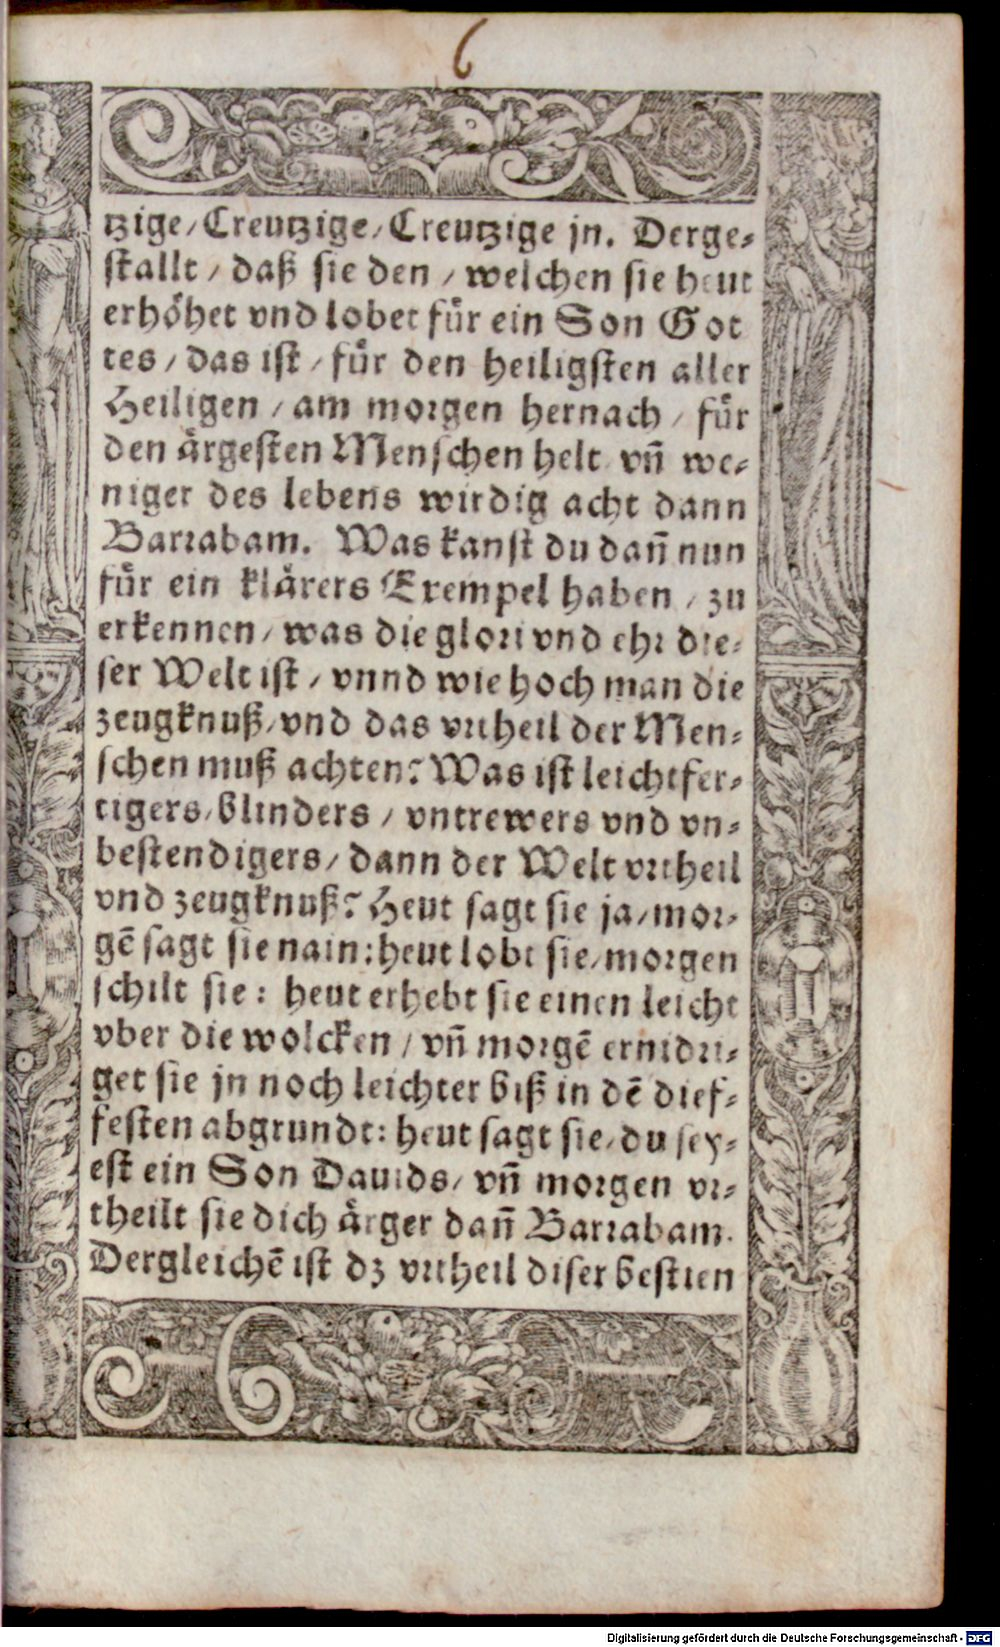 6
tzige/ Creutzige/ Creutzige jn. Derge⸗
stallt / daß sie den / welchen sie heut
erhöhet vnd lobet für ein Son Got
tes / das ist / für den heiligsten aller
Heiligen / am morgen hernach / für
den ärgesten Menschen helt vñ we⸗
niger des lebens wirdig acht dann
Barrabam. Was kanst du dañ nun
für ein klärers Exempel haben / zu
erkennen / was die glori vnd ehr die⸗
ser Welt ist / vnnd wie hoch man die
zeugknuß/ vnd das vrtheil der Men⸗
schen muß achten? Was ist leichtfer⸗
tigers/ blinders / vntrewers vnd vn⸗
bestendigers/ dann der Welt vrtheil
vnd zeugknuß? Heut sagt sie ja/ mor⸗
gẽ sagt sie nain: heut lobt sie/ morgen
schilt sie: heut erhebt sie einen leicht
vber die wolcken / vñ morgẽ ernidri⸗
get sie jn noch leichter biß in dẽ dief⸗
festen abgrundt: heut sagt sie/ du sey⸗
est ein Son Dauids/ vñ morgen vr⸗
theilt sie dich ärger dañ Barrabam.
Dergleichẽ ist dz vrtheil diser bestien
Digitalisierung gefördert durch die Deutsche Forschungsgemeinschaft - DFG